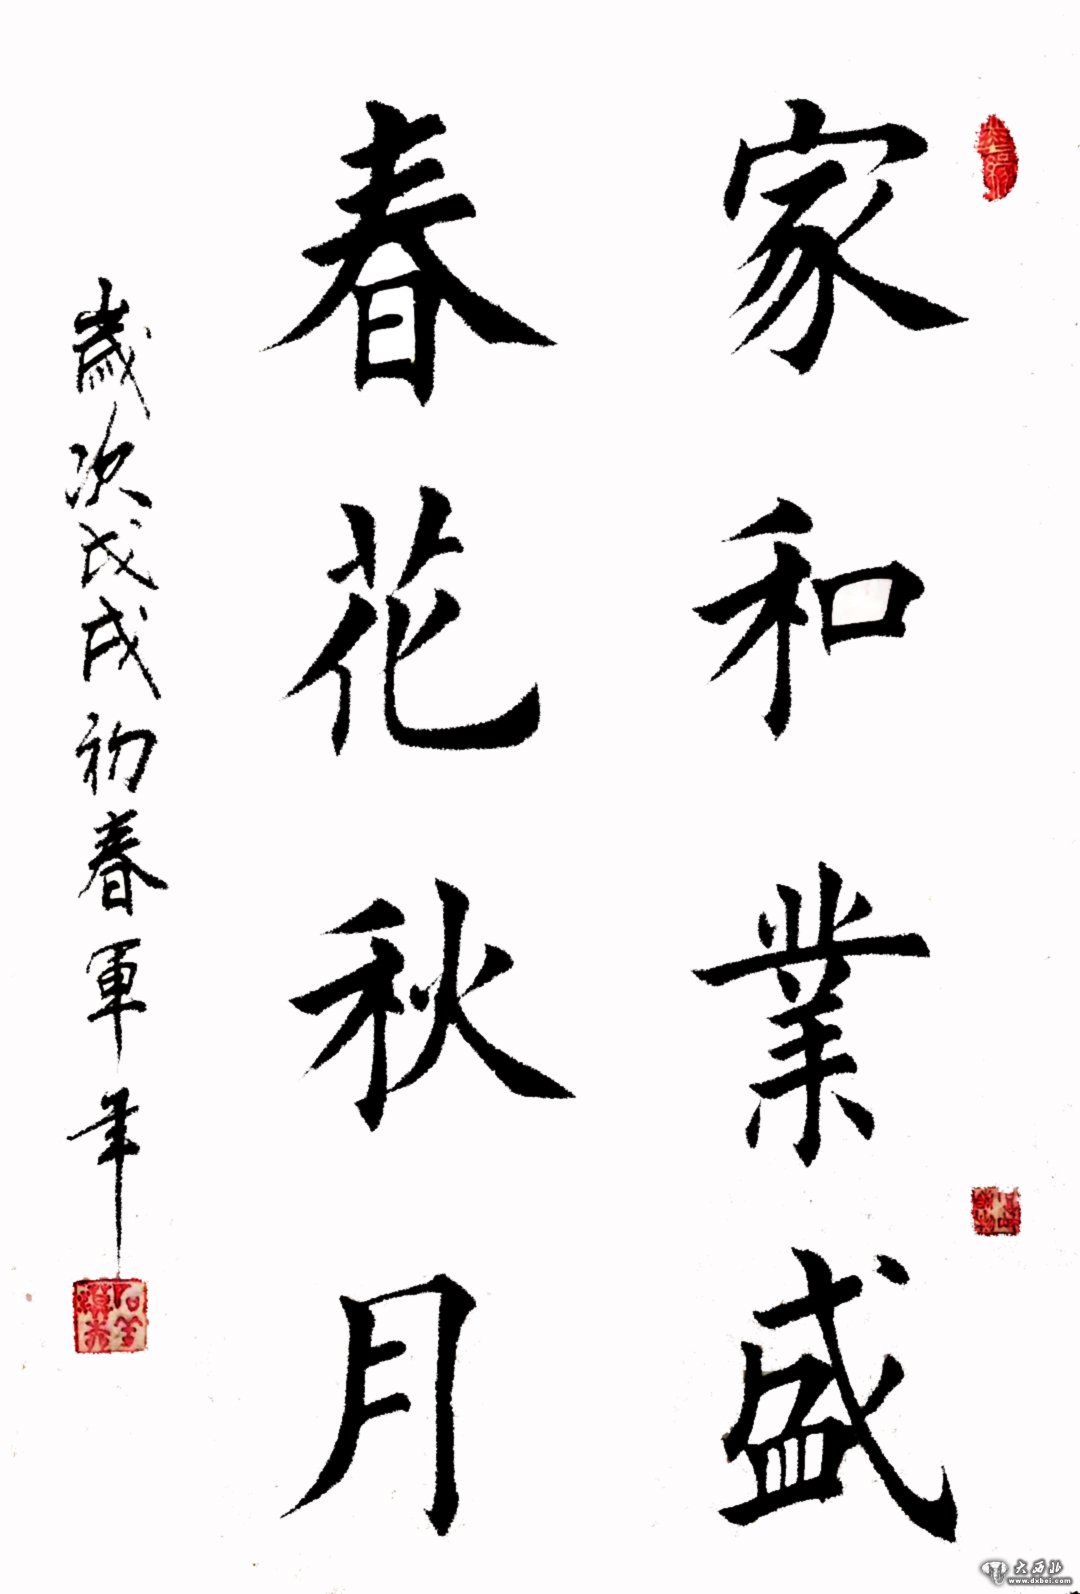 家和業盛
春花秋月
歲次戊戌初春軍年
大西北
www.dxbei.com